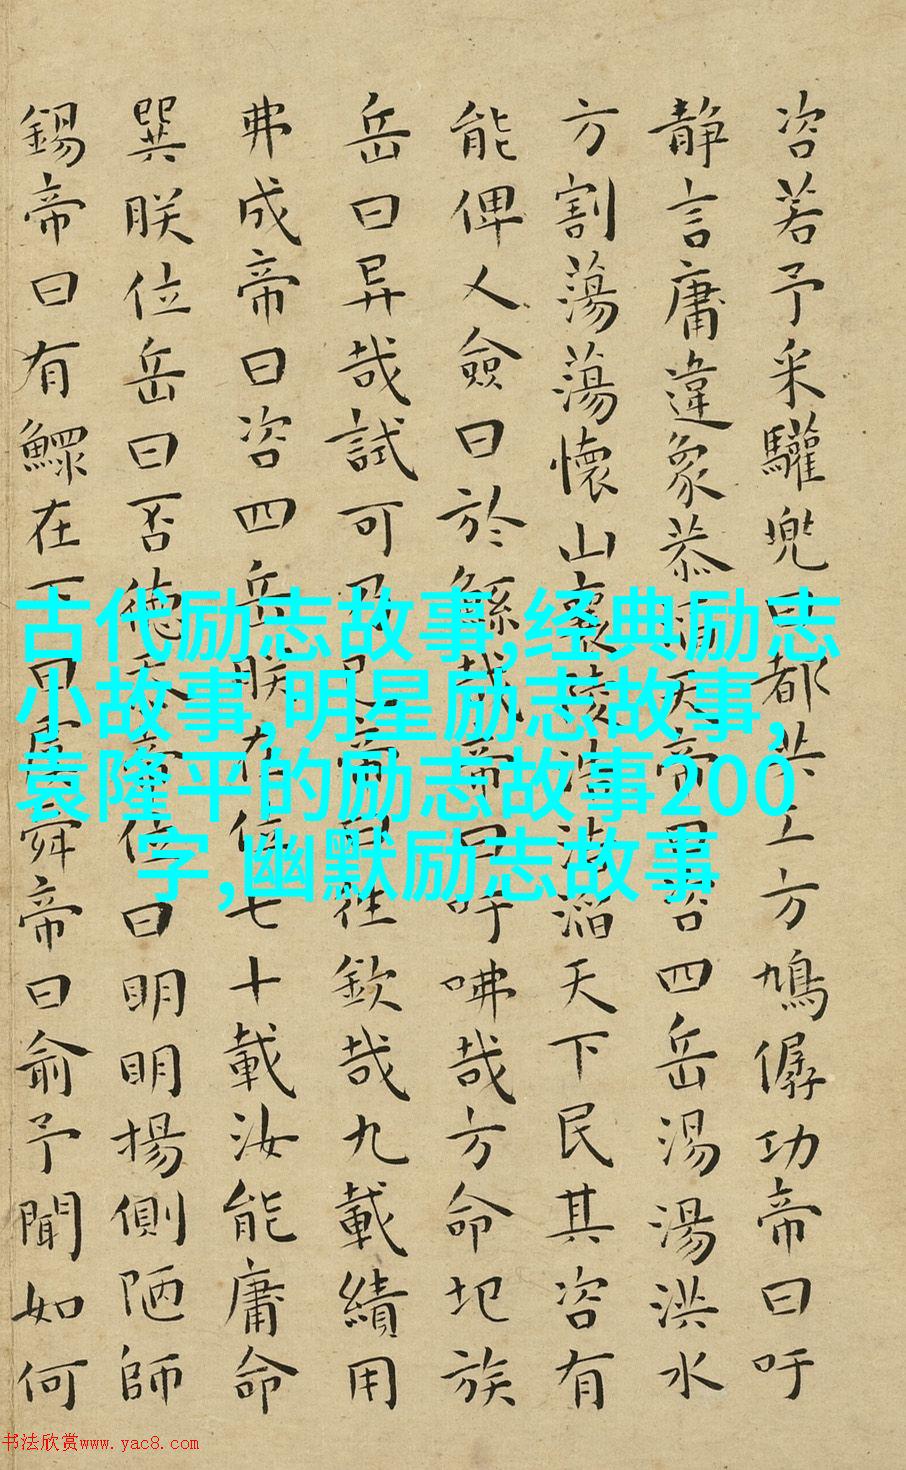 咨若予采驩兜曰都共工方鳩僝功帝曰吁
靜言庸違象恭滔天帝曰咨四岳湯湯洪水
方割蕩蕩懷山襄陵浩浩滔天下民其咨有
能俾乂僉曰於鯀哉帝曰吁咈哉方命圮族
岳曰异哉試可乃已帝曰往欽哉九載績用
弗成帝曰咨四岳朕在位七十載汝能庸命
巽朕位岳曰否德忝帝位曰明明揚側陋師
錫帝曰有鰥在下曰虞舜帝曰俞予聞如何
古代励志故事,经典励志
小故事,明星励志故事,
袁隆平的励志故事200
字,幽默励志故事
书法欣赏www.yac8.com